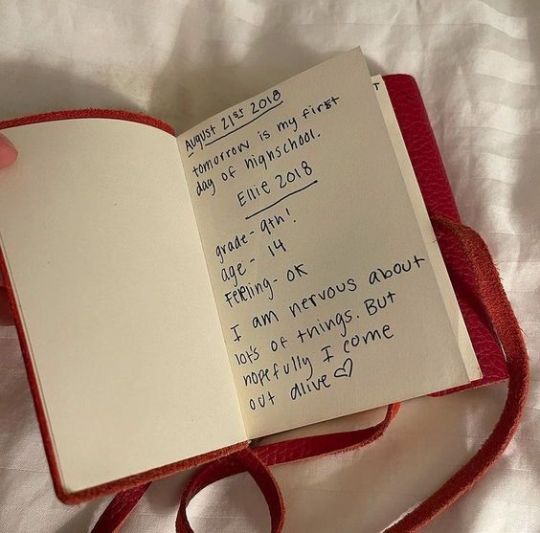 August 21st 2018
tomorrow is my first
day of highschool.
Ellie 2018
grade- 9th!
age - 14
Feeling- OK
I am nervous about
lots of things. But
hopefully I come
out alive♡
T